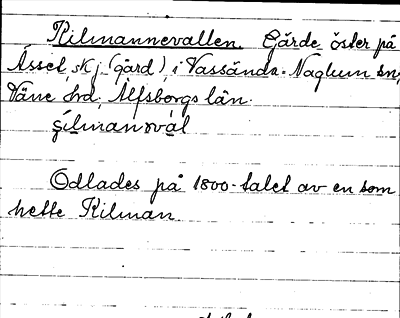 Kilmannevallen. Gärde öster på
Åssel, skj (gård) i Vassända-Naglum sn,
Väne hrd, Älfsborgs län.
çilmanəvàl
Odlades på 1800-talet av en som
hette Kilman